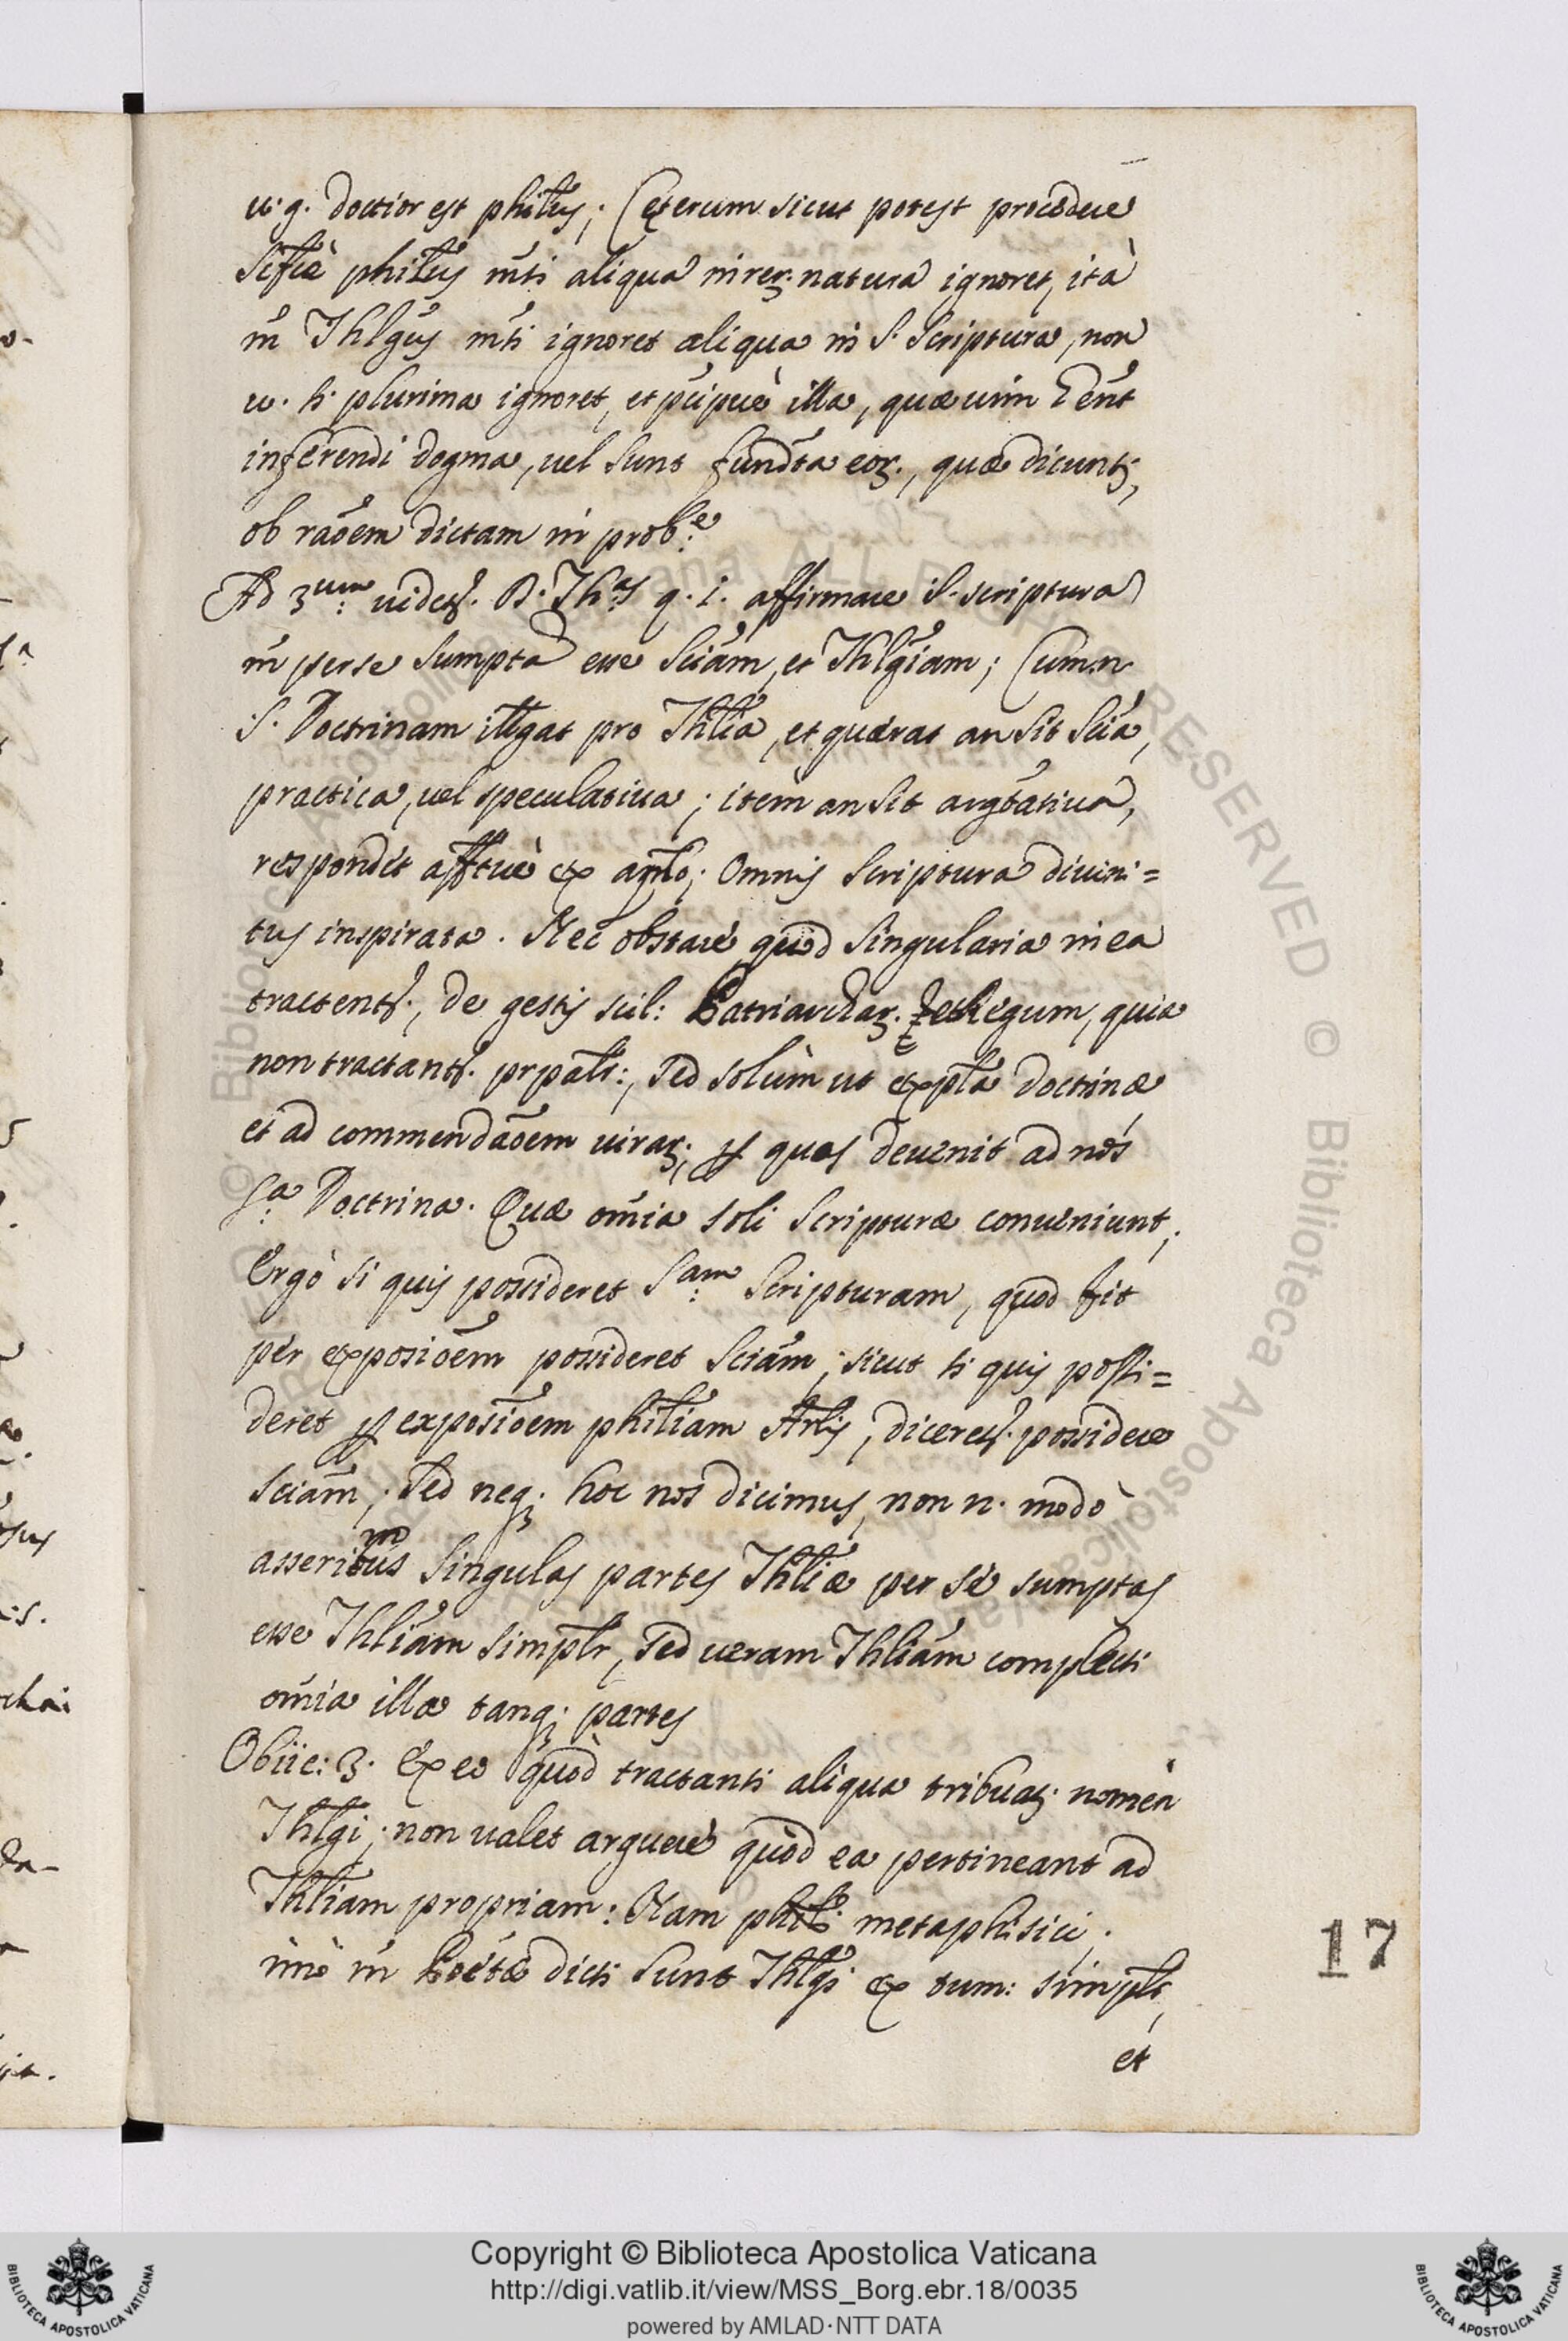 u. g. doctior est philus; Cęterum sicut potest procedere
philus mti aliqua in rerȝ. natura ignoret, ità
m̃ Thlgus mti ignoret aliqua in S. Scriptura, non
u. si plurima ignoret, et pcipuè illa, quæ uim
inferendi dogma, uel sunt fundta eorȝ., quæ dicuntȝ,
ob raõem dictam in prob:e
Ad 3um: uidetȝ. D. Th:as q. i. affirmare S. scriptura
m̃ per se sumpta esse Sciam, et Thlgiam; Cum n.
S. Doctrinam itlligat pro Thlia, et quærat an sit Scia,
practica, uel speculatiua; itèm an sit argtatiua,
respondit afftuè ex aplo; Omnis Scriptura diuini=
tus inspirata. Nec obstare quòd singularia in ea
tractentȝ., de gestis scil: Patriarcharȝ. et Regum, quia
non tractantȝ. prpalr:, sed solùm ut expla doctrinæ
et ad commendaõem uirorȝ; ꝑ quos deuenit ad nos
S:a Doctrina. Quæ omia soli Scripturæ conueniunt;
Ergò si quis possideret S:am Scripturam, quod fit
per exposioẽm possideret Sciam; sicut si quis possi=
deret ꝑ exposioem philiam Arlis, diceretȝ. possidere
sciam; Sed neqȝ. hoc nos dicimus, non n. modò
asserimus singulas partes Thliæ per se sumptas
esse Thliam simplr, sed ueram Thliam complecti
omia illa tanqȝ. partes
Obiic: 3. Ex eo quòd tractanti aliqua tribuatȝ. nomen
Thlgi; non ualet arguere quòd ea pertineant ad
Thliam propriam: Nam phili metaphisici;
imò m̃ Poëtæ dicti sunt Thlgi ex tum: simplr,
et
17
Copyright © Biblioteca Apostolica Vaticana
http://digi.vatlib.it/view/MSS_Borg.ebr.18/0035
powered by AMLAD·NTT DATA
BIBLIOTECA APOSTOLICA VATICANA
BIBLIOTECA APOSTOLICA VATICANA